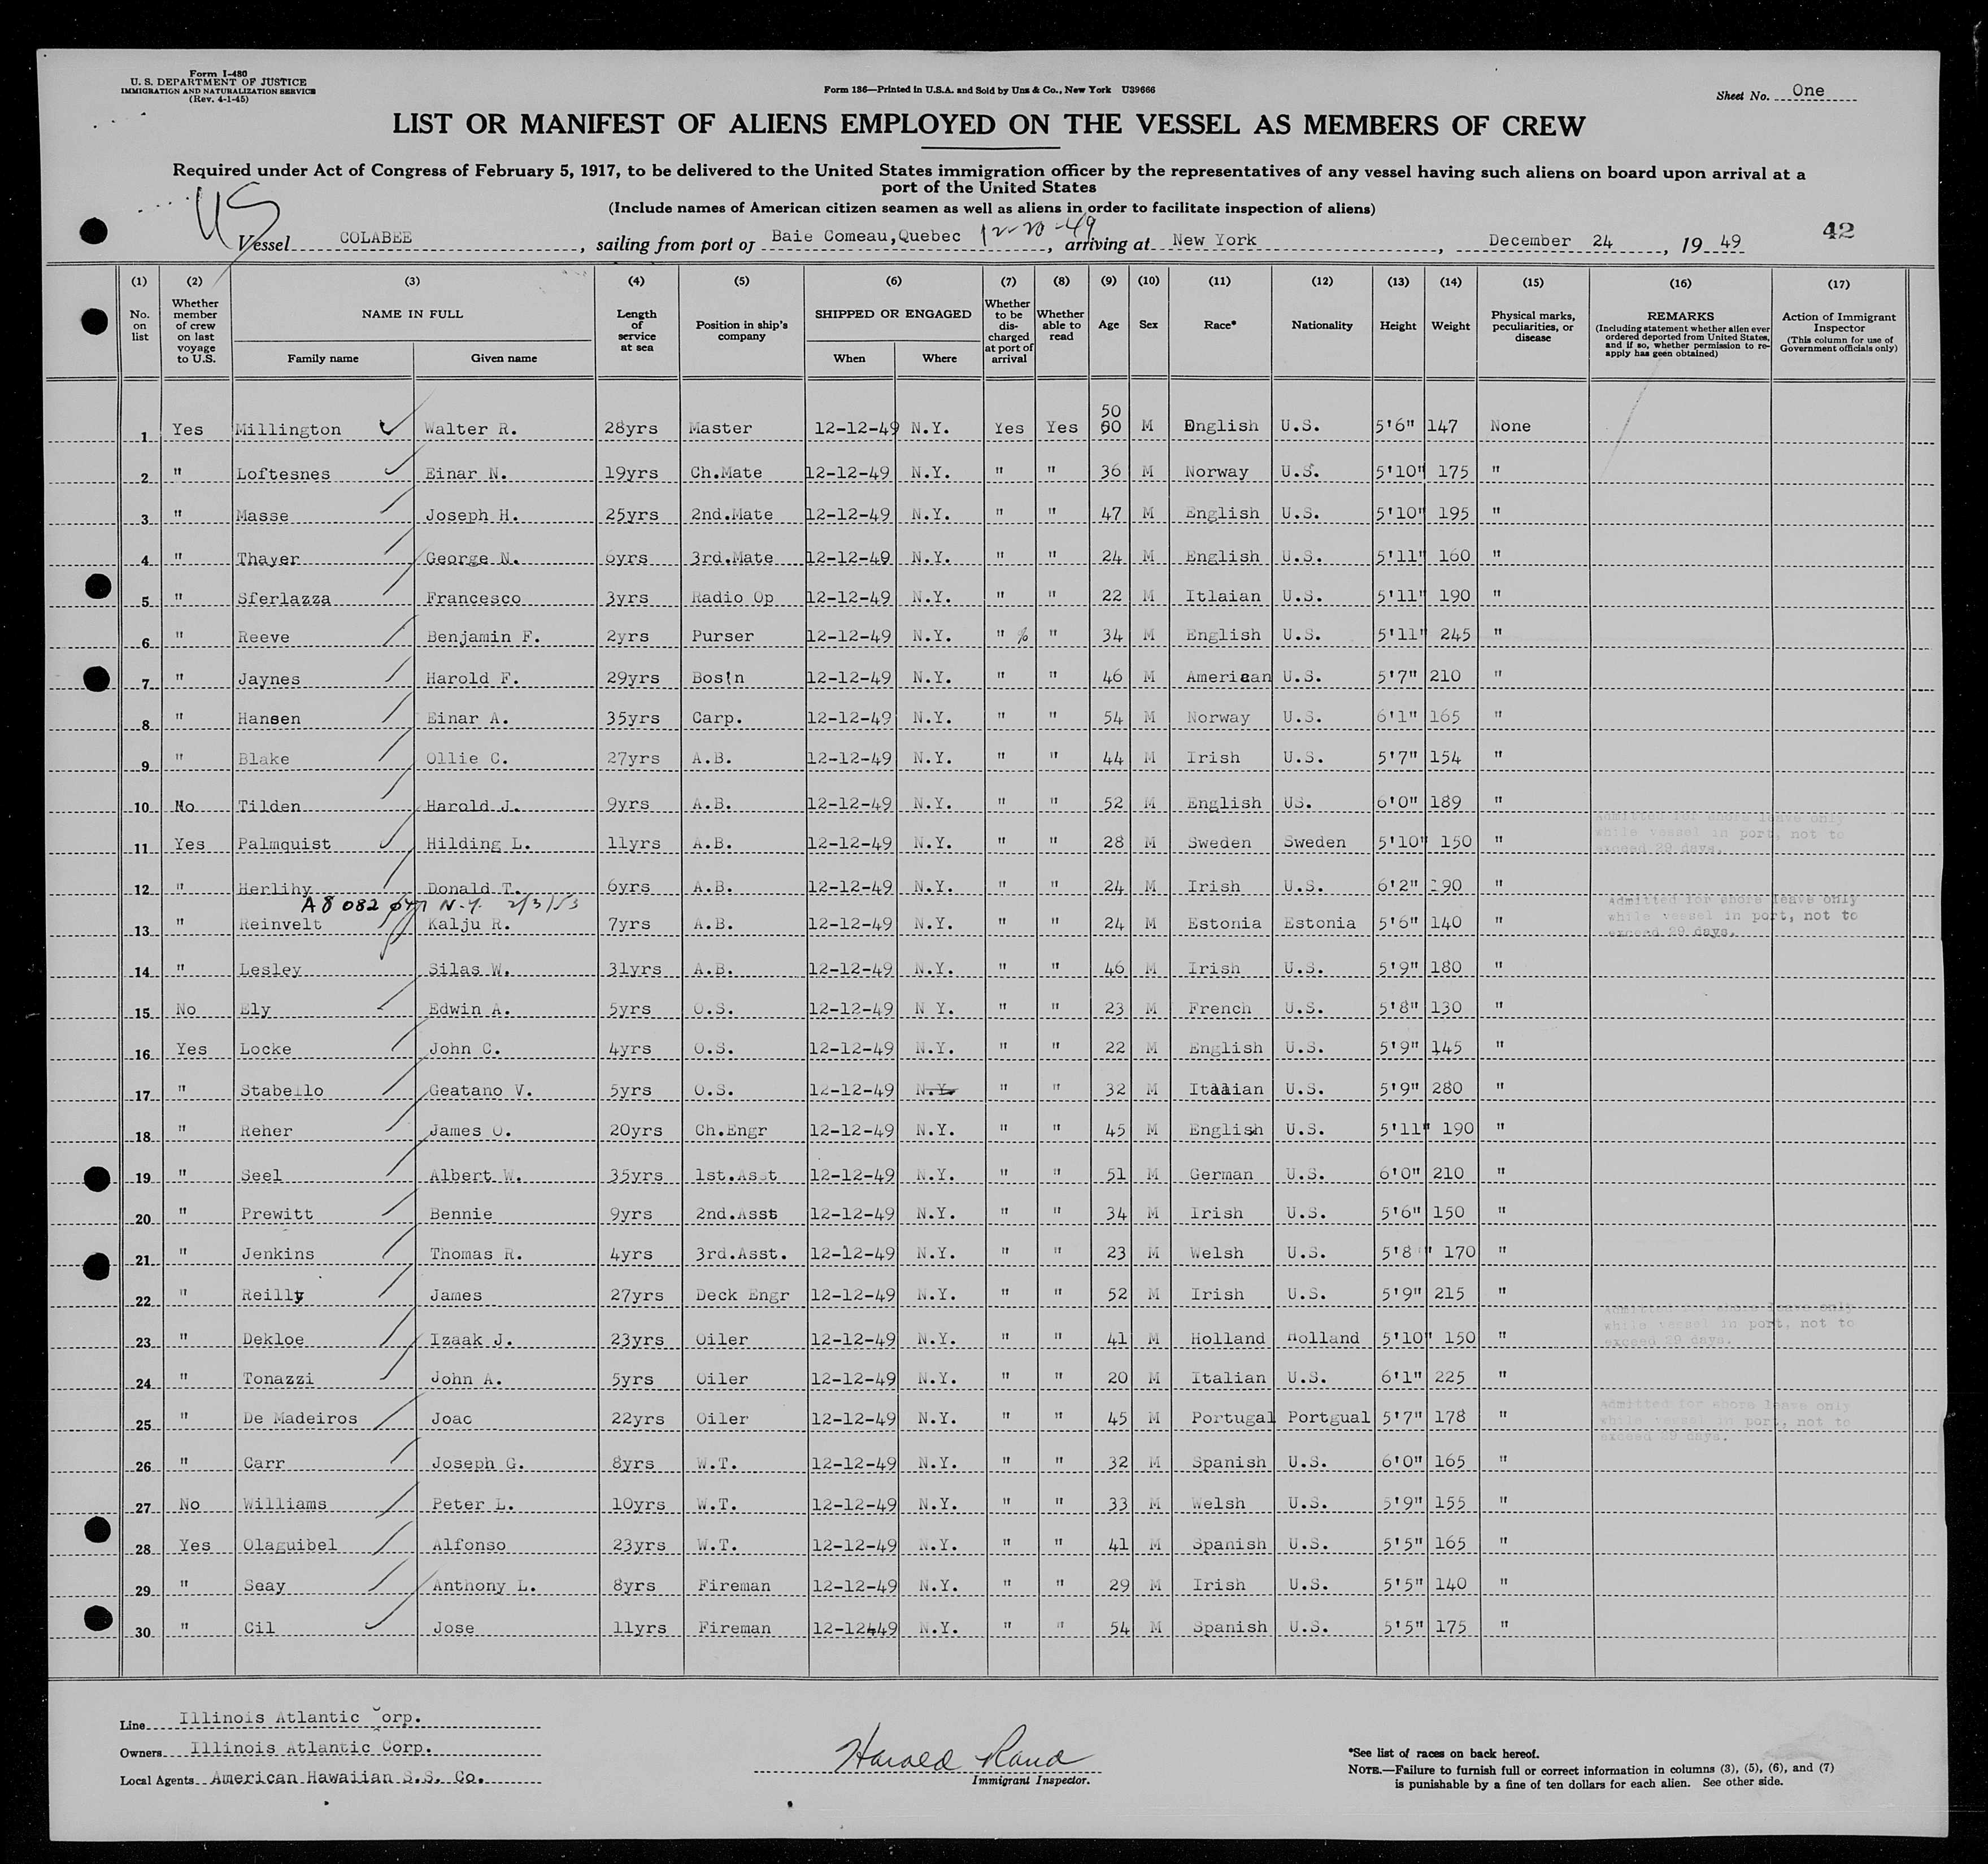 Form I-480
U. S. DEPARTMENT OF JUSTICE
IMMIGRATION AND NATURALIZATION SERVICE
(Rev. 4-1-45)
Form 186—Printed in U.S.A. and Sold by Unz & Co., New York U39666
Sheet No. One
LIST OR MANIFEST OF ALIENS EMPLOYED ON THE VESSEL AS MEMBERS OF CREW
Required under Act of Congress of February 5, 1917, to be delivered to the United States immigration officer by the representatives of any vessel having such aliens on board upon arrival at a
port of the United States
(Include names of American citizen seamen as well as aliens in order to facilitate inspection of aliens)
US
Vessel COLABEE, sailing from port of Baie Comeau, Quebec 12-20-49, arriving at New York, December 24, 19 49
42
(1) (2) (3) (4) (5) (6) (7) (8) (9) (10) (11) (12) (13) (14) (15) (16) (17)
No. on list
Whether member of crew on last voyage to U.S.
NAME IN FULL
Family name Given name
Length of service at sea
Position in ship's company
SHIPPED OR ENGAGED
When Where
Whether to be discharged at port of arrival
Whether able to read
Age Sex Race* Nationality Height Weight
Physical marks, peculiarities, or disease
REMARKS
(Including statement whether alien ever ordered deported from United States, and if so, whether permission to re-apply has geen obtained)
Action of Immigrant Inspector
(This column for use of Government officials only)
50
1 Yes Millington Walter R. 28yrs Master 12-12-49 N.Y. Yes Yes M English U.S. 5'6" 147 None
2 " Loftesnes Einar N. 19yrs Ch.Mate 12-12-49 N.Y. " " 36 M Norway U.S. 5'10" 175 "
3 " Masse Joseph H. 25yrs 2nd.Mate 12-12-49 N.Y. " " 47 M English U.S. 5'10" 195 "
4 " Thayer George N. 6yrs 3rd.Mate 12-12-49 N.Y. " " 24 M English U.S. 5'11" 160 "
5 " Sferlazza Francesco 3yrs Radio Op 12-12-49 N.Y. " " 22 M Itlaian U.S. 5'11" 190 "
6 " Reeve Benjamin F. 2yrs Purser 12-12-49 N.Y. " % " 34 M English U.S. 5'11" 245 "
7 " Jaynes Harold F. 29yrs Bos'n 12-12-49 N.Y. " " 46 M American U.S. 5'7" 210 "
8 " Hansen Einar A. 35yrs Carp. 12-12-49 N.Y. " " 54 M Norway U.S. 6'1" 165 "
9 " Blake Ollie C. 27yrs A.B. 12-12-49 N.Y. " " 44 M Irish U.S. 5'7" 154 "
10 No Tilden Harold J. 9yrs A.B. 12-12-49 N.Y. " " 52 M English US. 6'0" 189 "
11 Yes Palmquist Hilding L. 11yrs A.B. 12-12-49 N.Y. " " 28 M Sweden Sweden 5'10" 150 " Admitted for shore leave only while vessel in port, not to exceed 29 days.
12 " Herlihy Donald T. 6yrs A.B. 12-12-49 N.Y. " " 24 M Irish U.S. 6'2" 190 "
A8 082 N.Y. 2/3/53
13 " Reinvelt Kalju R. 7yrs A.B. 12-12-49 N.Y. " " 24 M Estonia Estonia 5'6" 140 " Admitted for shore leave only while vessel in port, not to exceed 29 days.
14 " Lesley Silas W. 31yrs A.B. 12-12-49 N.Y. " " 46 M Irish U.S. 5'9" 180 "
15 No Ely Edwin A. 5yrs O.S. 12-12-49 N Y. " " 23 M French U.S. 5'8" 130 "
16 Yes Locke John C. 4yrs O.S. 12-12-49 N.Y. " " 22 M English U.S. 5'9" 145 "
17 " Stabello Geatano V. 5yrs O.S. 12-12-49 N.Y. " " 32 M Italian U.S. 5'9" 280 "
18 " Reher James O. 20yrs Ch.Engr 12-12-49 N.Y. " " 45 M English U.S. 5'11" 190 "
19 " Seel Albert W. 35yrs 1st.Asst 12-12-49 N.Y. " " 51 M German U.S. 6'0" 210 "
20 " Prewitt Bennie 9yrs 2nd.Asst 12-12-49 N.Y. " " 34 M Irish U.S. 5'6" 150 "
21 " Jenkins Thomas R. 4yrs 3rd.Asst. 12-12-49 N.Y. " " 23 M Welsh U.S. 5'8" 170 "
22 " Reilly James 27yrs Deck Engr 12-12-49 N.Y. " " 52 M Irish U.S. 5'9" 215 "
23 " Dekloe Izaak J. 23yrs Oiler 12-12-49 N.Y. " " 41 M Holland Holland 5'10" 150 " Admitted for shore leave only while vessel in port, not to exceed 29 days.
24 " Tonazzi John A. 5yrs Oiler 12-12-49 N.Y. " " 20 M Italian U.S. 6'1" 225 "
25 " De Madeiros Joao 22yrs Oiler 12-12-49 N.Y. " " 45 M Portugal Portgual 5'7" 178 " Admitted for shore leave only while vessel in port, not to exceed 29 days.
26 " Carr Joseph G. 8yrs W.T. 12-12-49 N.Y. " " 32 M Spanish U.S. 6'0" 165 "
27 No Williams Peter L. 10yrs W.T. 12-12-49 N.Y. " " 33 M Welsh U.S. 5'9" 155 "
28 Yes Olaguibel Alfonso 23yrs W.T. 12-12-49 N.Y. " " 41 M Spanish U.S. 5'5" 165 "
29 " Seay Anthony L. 8yrs Fireman 12-12-49 N.Y. " " 29 M Irish U.S. 5'5" 140 "
30 " Cil Jose 11yrs Fireman 12-12-49 N.Y. " " 54 M Spanish U.S. 5'5" 175 "
Line Illinois Atlantic Corp.
Owners Illinois Atlantic Corp.
Local Agents American Hawaiian S.S. Co.
Harold Rand
Immigrant Inspector.
*See list of races on back hereof.
NOTE.—Failure to furnish full or correct information in columns (3), (5), (6), and (7)
is punishable by a fine of ten dollars for each alien. See other side.